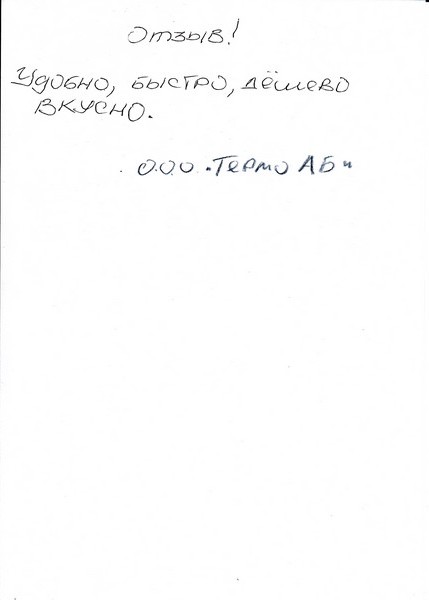 Отзыв!
Удобно, быстро, дёшево
вкусно.
О.О.О. "Термо АБ"